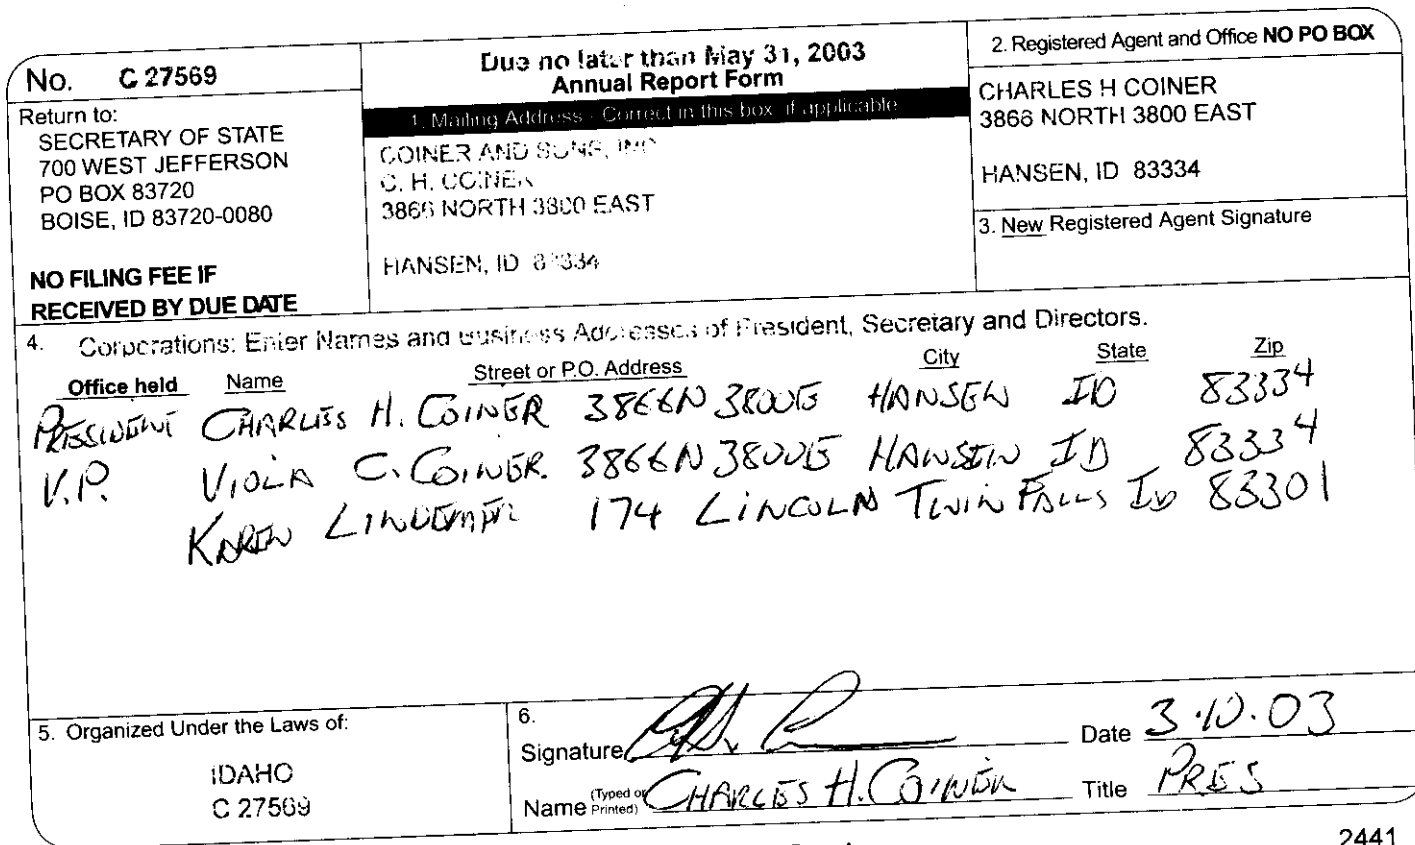 No. C 27569
Return to:
SECRETARY OF STATE
700 WEST JEFFERSON
PO BOX 83720
BOISE, ID 83720-0080
NO FILING FEE IF
RECEIVED BY DUE DATE
Due no later than May 31, 2003
Annual Report Form
1. Mailing Address - Correct in this box, if applicable
COINER AND SONS, INC
C. H. COINER
3866 NORTH 3800 EAST
HANSEN, ID 83334
2. Registered Agent and Office NO PO BOX
CHARLES H COINER
3866 NORTH 3800 EAST
HANSEN, ID 83334
3. New Registered Agent Signature
4. Corporations: Enter Names and Business Addresses of President, Secretary and Directors.
Office held Name Street or P.O. Address City State Zip
PRESIDENT CHARLES H. COINER 3866N 3800E HANSEN ID 83334
V.P. VIOLA C. COINER 3866N 3800E HANSEN ID 83334
KAREN 174 LINCOLN TWIN FALLS ID 83301
5. Organized Under the Laws of:
IDAHO
C 27569
6.
Signature Date 3.10.03
Name (Typed or Printed) CHARLES H. COINER Title PRES
2441